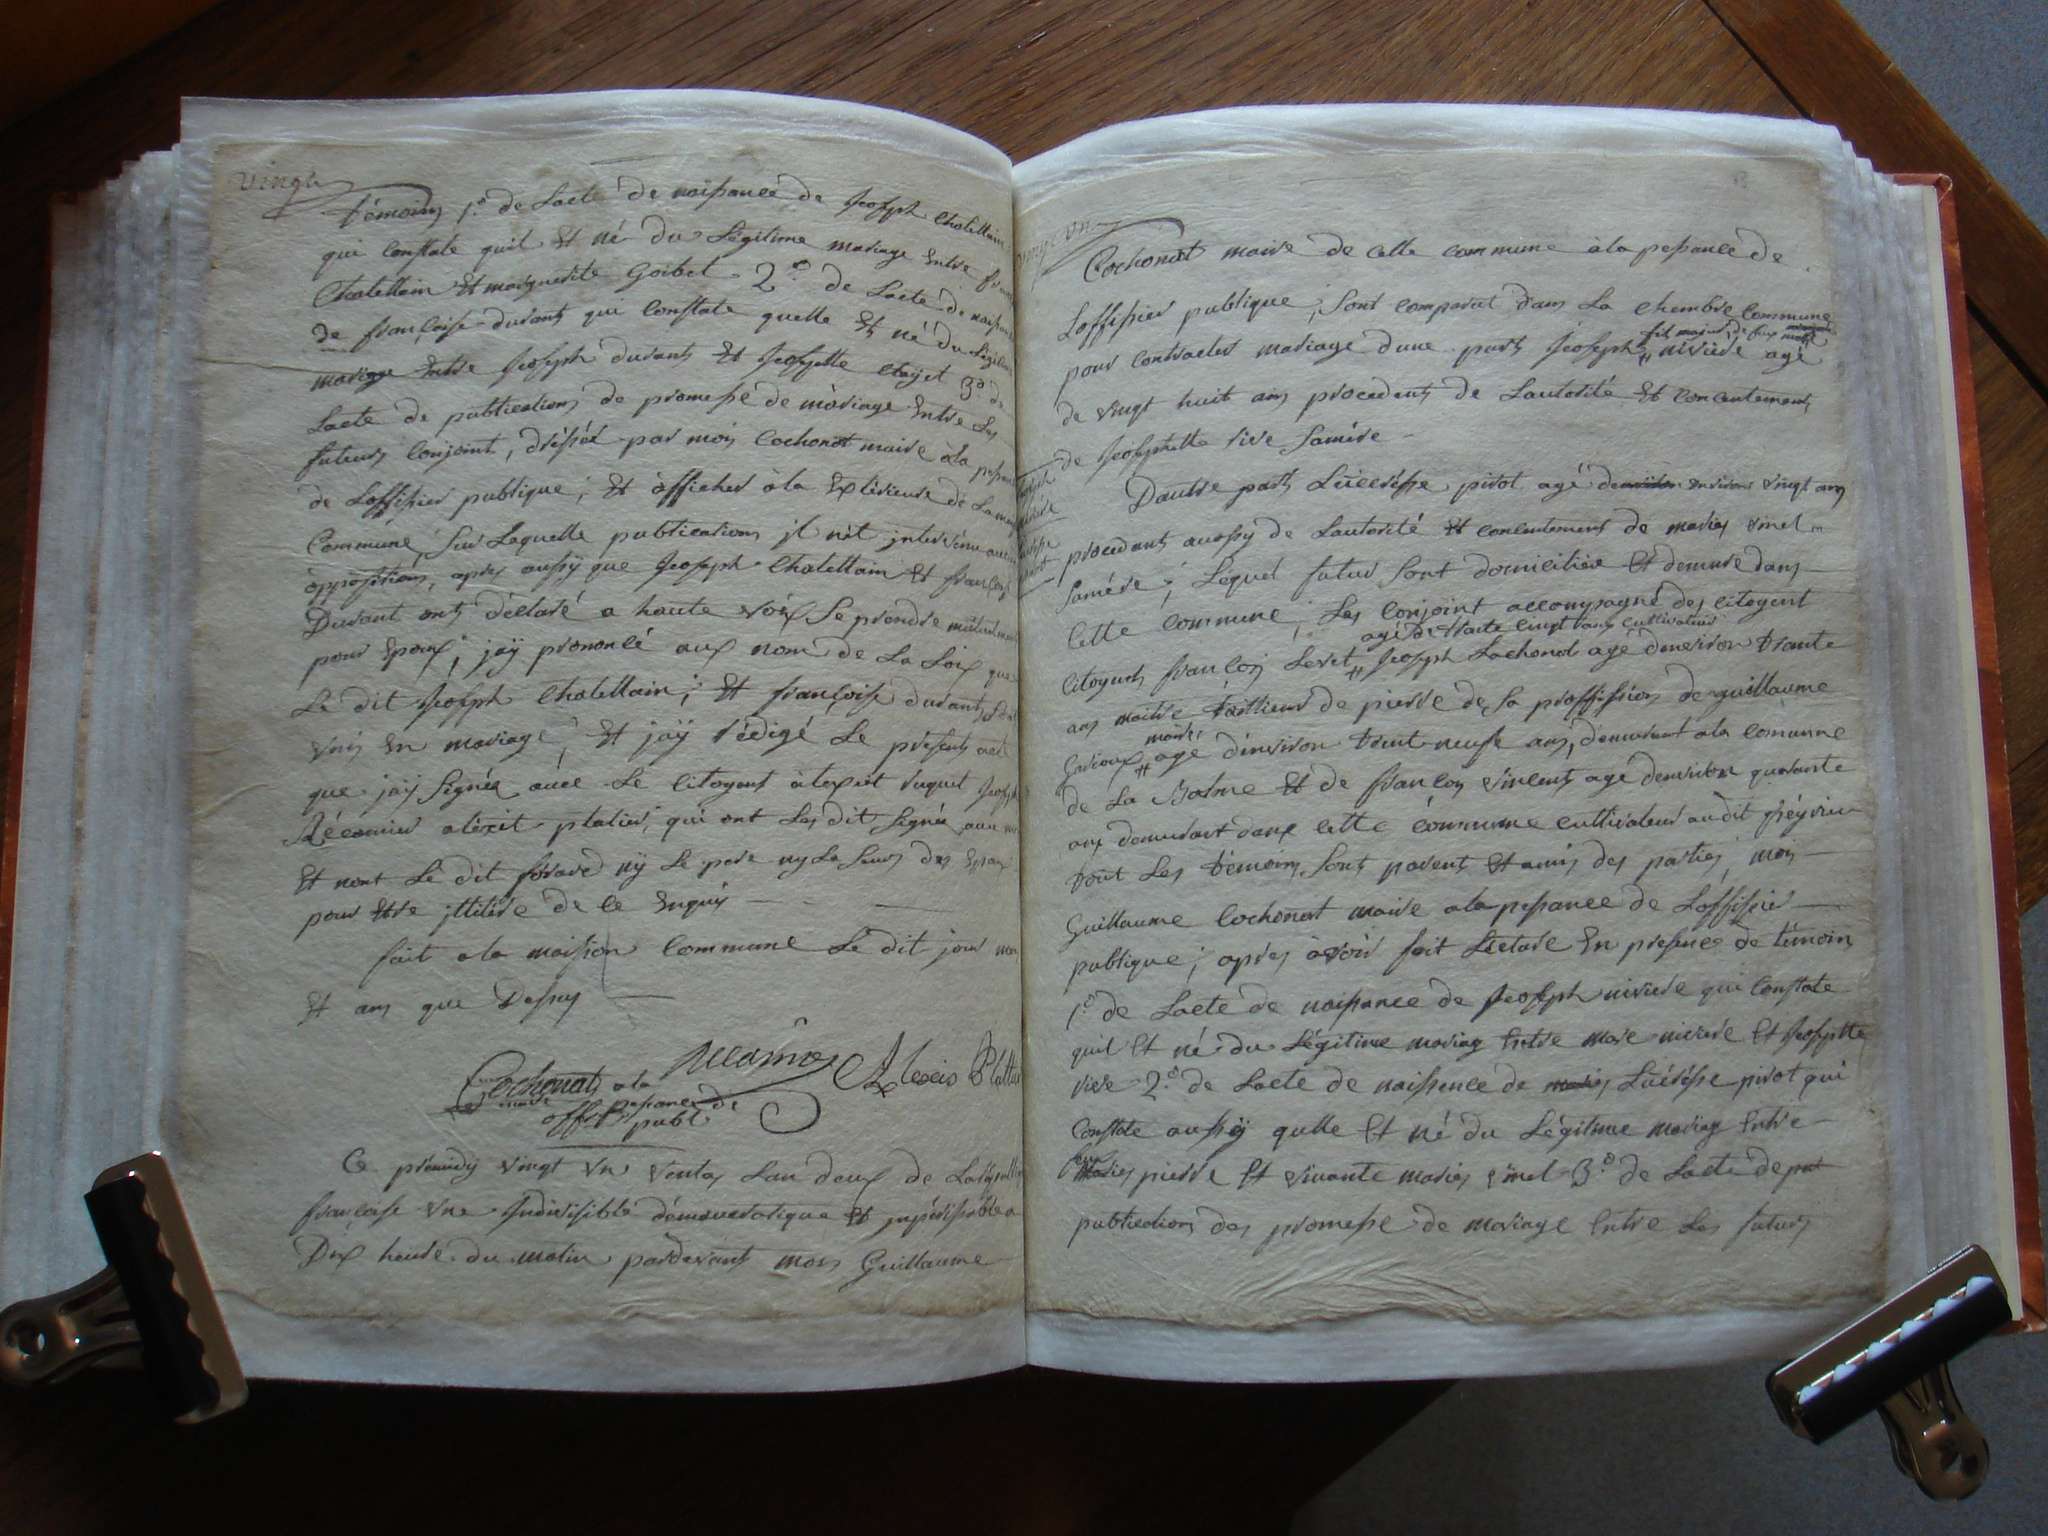 vingt
témoins 1.o de Lacte de naissance de Joseph Chatellain
qui constate quil Et né du Légitime mariage Entre
Chatellain Et marguerite Goibet 2.o de Lacte de naissance
de françoise durant qui Constate quelle Et né du Légitime
mariage Entre Joseph durant Et Josephte 3.o de
Lacte de publications de promesse de mariage Entre Les
futurs Conjoint, dressée par mois Cochonat maire àla
de Loffissier publique; Et afficher àla Extérieure de La
Commune, Sur Laquelle publications jl nèt jntervenu
opposition, apres aussy que Joseph Chatellain Et
Durant ont déclaré a haute voix Se prendre
pour Epoux; jaÿ prononcé aux nom de La Loix que
Le dit Joseph Chatellain; Et françoise durant
vnis En mariage, Et jaÿ rédigé Le present acte
que jaÿ Signée avec Le Citoyent àlexiet ruquet Joseph
Récamier alexit platier, qui ont Les dit Signée
Et nont Le dit ny Le pere ny La Seur des Epoux
pour Etre jllitere de Ce Enquis
fait a la maison Commune Le dit jour
Et ans que Dessus
Cochonat a la Récamier Alexis Plattier
maire absance de
off publ
Ce primidy vingt vn ventos Lan deux de La
francaise vne Jndivisible démoucratique Et jnpérissable a
Dix heure du matin pardevant mois Guillaume
vingt vn
Cochonat maire de Cette Commune àla pessance de
Loffissier publique; Sont Comparut dans La Chembre Commune
fils majeur de feux
pour Contracter mariage dune part Joseph niviere agé
de vingt huit ans procedent de Lautorité Et Concentement
de Josephte rive Samére
Dautre part Lucresse pivot agé denviron environ vingt ans
procedant aussy de Lautorité Et Concentement de maries vinel
Samére; Lequel futur Sont domicilier Et demure dans
Cette Commune; Les Conjoint accompagné des Citoyent
agé de trante Cinqt ans Cultivateur
Citoyens françois Levet Joseph Lachonod agé denviron trante
ans maitre taillieur de pierre de Sa proffission de guillaume
maire
agé denviron trant neuf ans, demurant ala Comunne
de La Balme Et de françois vincent agé denviron quarante
ans demurant dans Cette Comune Cultivateur au dit
tout Les témoins Sont parent Et amis des parties, mois
Guillaume Cochonat maire ala pessance de Loffissier
publique; apres avoir fait Lecture En presence de témoin
1.o de Lacte de naissance de Joseph niviere qui Constate
quil Et né du Légitime mariag Entre marc niviere Et Josephte
rive 2.o de Lacte de naissence de maries Lucresse pivot qui
Constate aussy quelle Et né du Légitime mariag Entre
pierre Et vivante maries vinel 3.o de Lacte de
publication des promesse de mariage Entre Les futurs